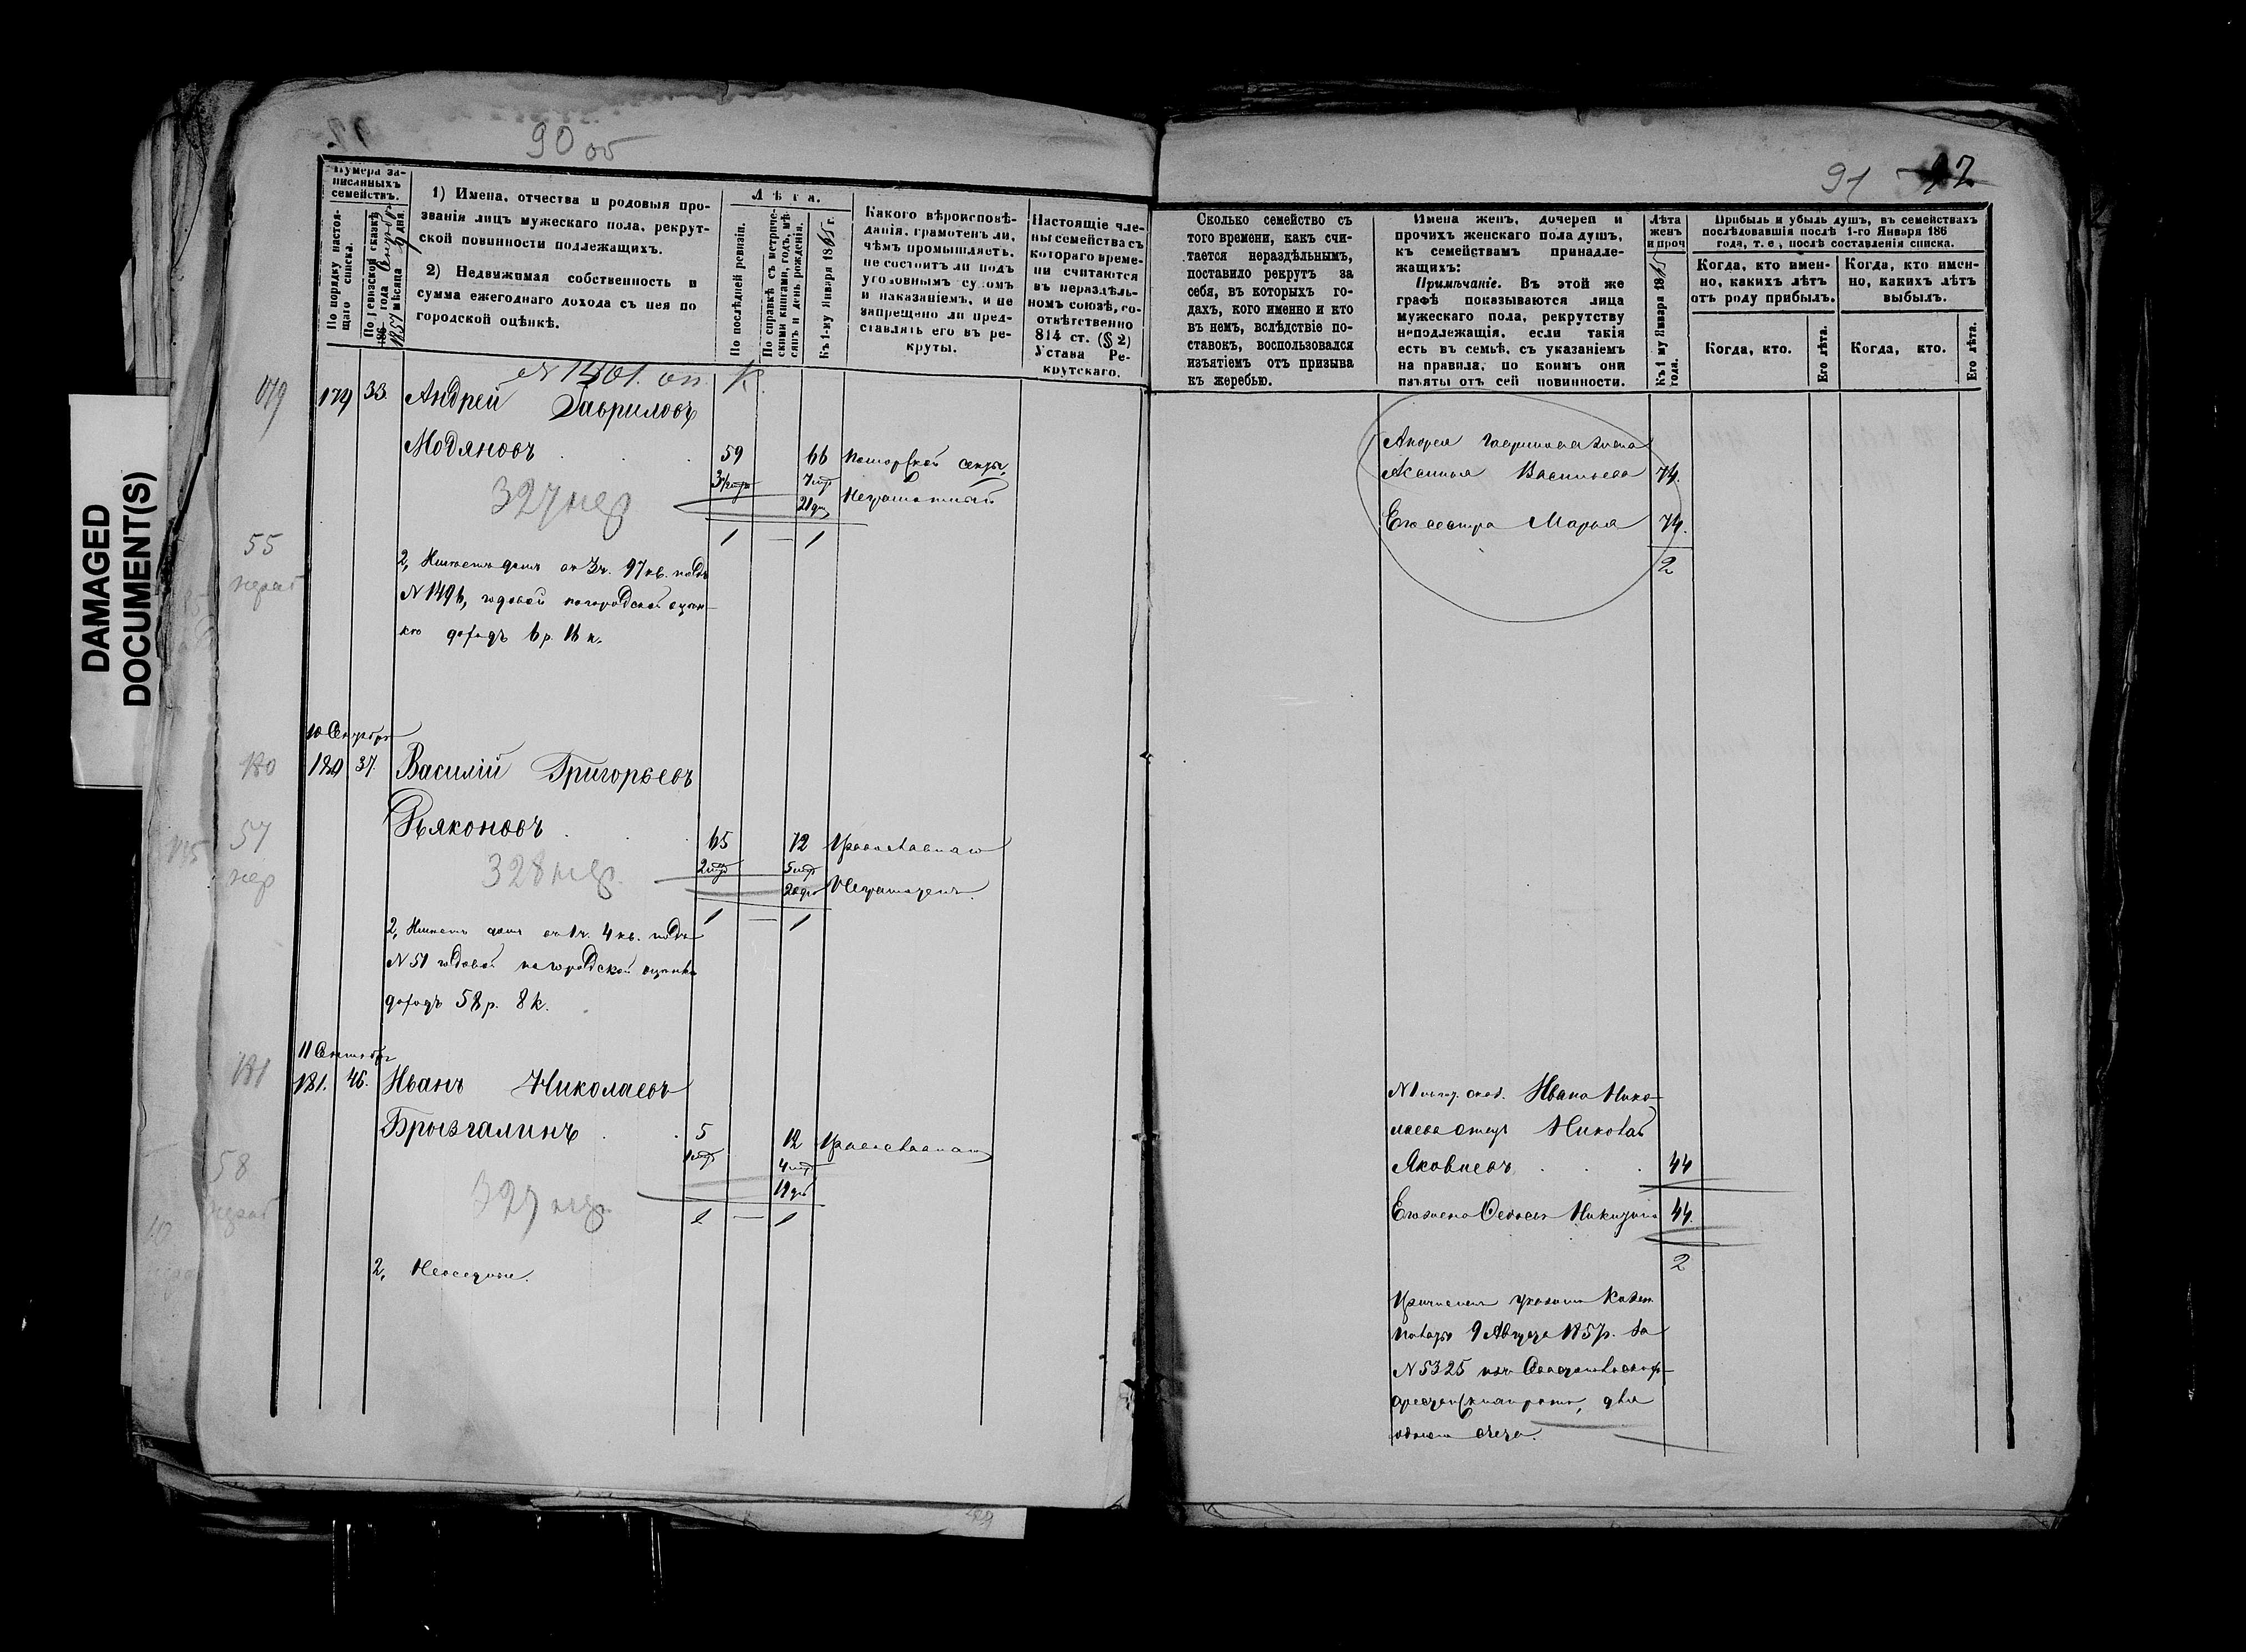 DAMAGED
DOCUMENT(S)
90 об
Нумера за-
писанныхъ
семействъ.
По порядку настоя-
щаго списка.
По ревизской сказкѣ
186 года
1857 мѣсяца 9 дня.
1) Имена, отчества и родовыя про-
званія лицъ мужескаго пола, рекрут-
ской повинности подлежащихъ.
2) Недвижимая собственность и
сумма ежегоднаго дохода съ нея по
городской оцѣнкѣ.
Лѣта.
По послѣдней ревизіи.
По справкѣ съ метриче-
скими книгами, годъ, мѣ-
сяцъ и день рожденія.
Къ 1-му Января 1865 г.
Какого вѣроисповѣ-
данія, грамотенъ ли,
чѣмъ промышляетъ,
не состоитъ ли подъ
уголовнымъ судомъ
и наказаніемъ, и не
запрещено ли пред-
ставлять его въ ре-
круты.
Настоящіе чле-
ны семейства съ
котораго време-
ни считаются
въ нераздѣль-
номъ союзѣ, со-
отвѣтственно
814 ст. (§ 2)
Устава Ре-
крутскаго.
179
179 33. Андрей Гавриловъ
Модяновъ 59 66 Поморской секты
7 мѣс
21 дн Неграмотный
327 нер
1 — 1
55
нераб
2, Имѣетъ домъ въ 3 ч. 97 кв. подъ
N 1496, годовой по городской оцѣн-
кѣ доходъ 6 р. 16 к.
10 Сентября
180
180 37. Василій Григорьевъ
Дьяконовъ 65 72 Православнаго
5 мѣс
20 дн Неграмотенъ.
328 нер.
1 — 1
57
нер
2, Имѣетъ домъ въ 1 ч. 4 кв. подъ
N 51 годовой по городской оцѣнкѣ
доходъ 58 р. 8 к.
11 Сентября
181
181. 46. Иванъ Николаевъ
Брызгалинъ 5 12 Православнаго
4 мѣс
327 нер.
1 — 1
58
2, Неоседлые.
91
Сколько семейство съ
того времени, какъ счи-
тается нераздѣльнымъ,
поставило рекрутъ за
себя, въ которыхъ го-
дахъ, кого именно и кто
въ немъ, вслѣдствіе по-
ставокъ, воспользовался
изъятіемъ отъ призыва
къ жеребью.
Имена женъ, дочерей и
прочихъ женскаго пола душъ,
къ семействамъ принадле-
жащихъ:
Примѣчаніе. Въ этой же
графѣ показываются лица
мужескаго пола, рекрутству
неподлежащія, если такія
есть въ семьѣ, съ указаніемъ
на правила, по коимъ они
изъяты отъ сей повинности.
Лѣта
женъ
и проч
Къ 1 му Января 1865
года.
Прибыль и убыль душъ, въ семействахъ
послѣдовавшія послѣ 1-го Января 186
года, т. е., послѣ составленія списка.
Когда, кто имен-
но, какихъ лѣтъ
отъ роду прибылъ.
Когда, кто имен-
но, какихъ лѣтъ
выбылъ.
Когда, кто.
Его лѣта.
Когда, кто.
Его лѣта.
Андрея Гаврилова жена
Аксинья Васильева 74.
Его сестра Марья 74.
2
Ивана Нико-
лаева отецъ Николай
Яковлевъ 44
Его жена Федосья Никитина 44.
2
Причислен указомъ Казен
палаты 9 Августа 1857 г. за
N 5325 изъ
для
одного счета.